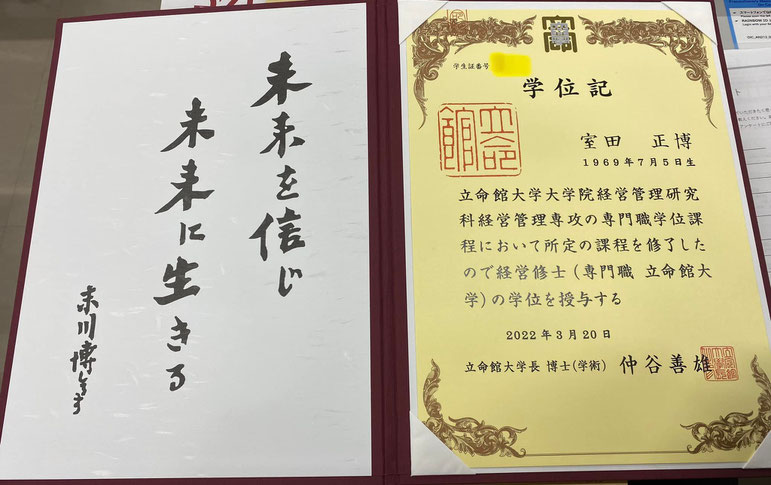 未来を信じ
未来に生きる
末川博
学生証番号
学位記
立命館
室田 正博
1969年7月5日生
立命館大学大学院経営管理研究
科経営管理専攻の専門職学位課
程において所定の課程を修了した
ので経営修士(専門職 立命館大
学)の学位を授与する
2022年3月20日
立命館大学長 博士(学術) 仲谷善雄